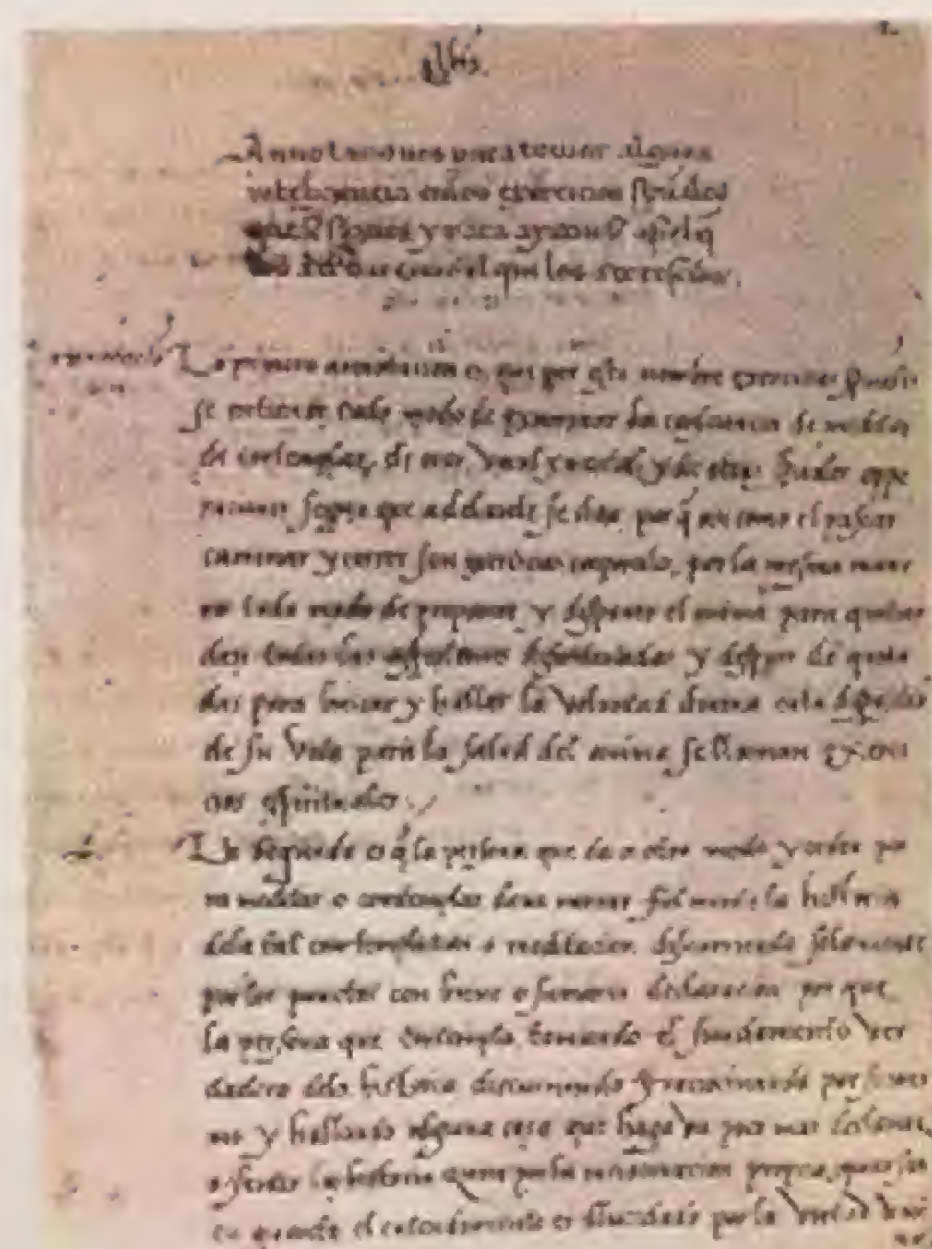 Jhs.
Annotaciones para tomar alguna
intelligencia enlos exercicios spũales
que se siguen y para ayudarse asi el q̃
los ha de dar como el que los ha de rescibir.
La primera annotacion es que por este nombre exercicios spũales
se entiende todo modo de examinar la consciencia de meditar
de contemplar, de orar, vocal y mental, y de otras spũales ope
raciones segun que adelante se dira. porq̃ asi como el pasear
caminar y correr son exercicios corporales, por la mesma mane
ra todo modo de preparar y disponer el anima para quitar
desi todas las affectiones desordenadas y despues de quita
das para buscar y hallar la voluntad diuina enla disposicion
de su vida para la salud del anima se llaman exerci
cios spirituales.
2. La segunda es q̃ la persona que da a otro modo y orden pa
ra meditar o contemplar deue narrar fielmente la historia
dela tal contemplacion o meditacion discurriendo solamente
por los punctos con breue o sumaria declaracion por que
la persona que contempla tomando el fundamento ver
dadero dela historia discurriendo y raciocinando por si mes
mo y hallando alguna cosa que haga vn poco mas declarar
o sentir la historia quier por la raciocinacion propria, quier sea
en quanto el entendimiento es illucidado por la virtud diui